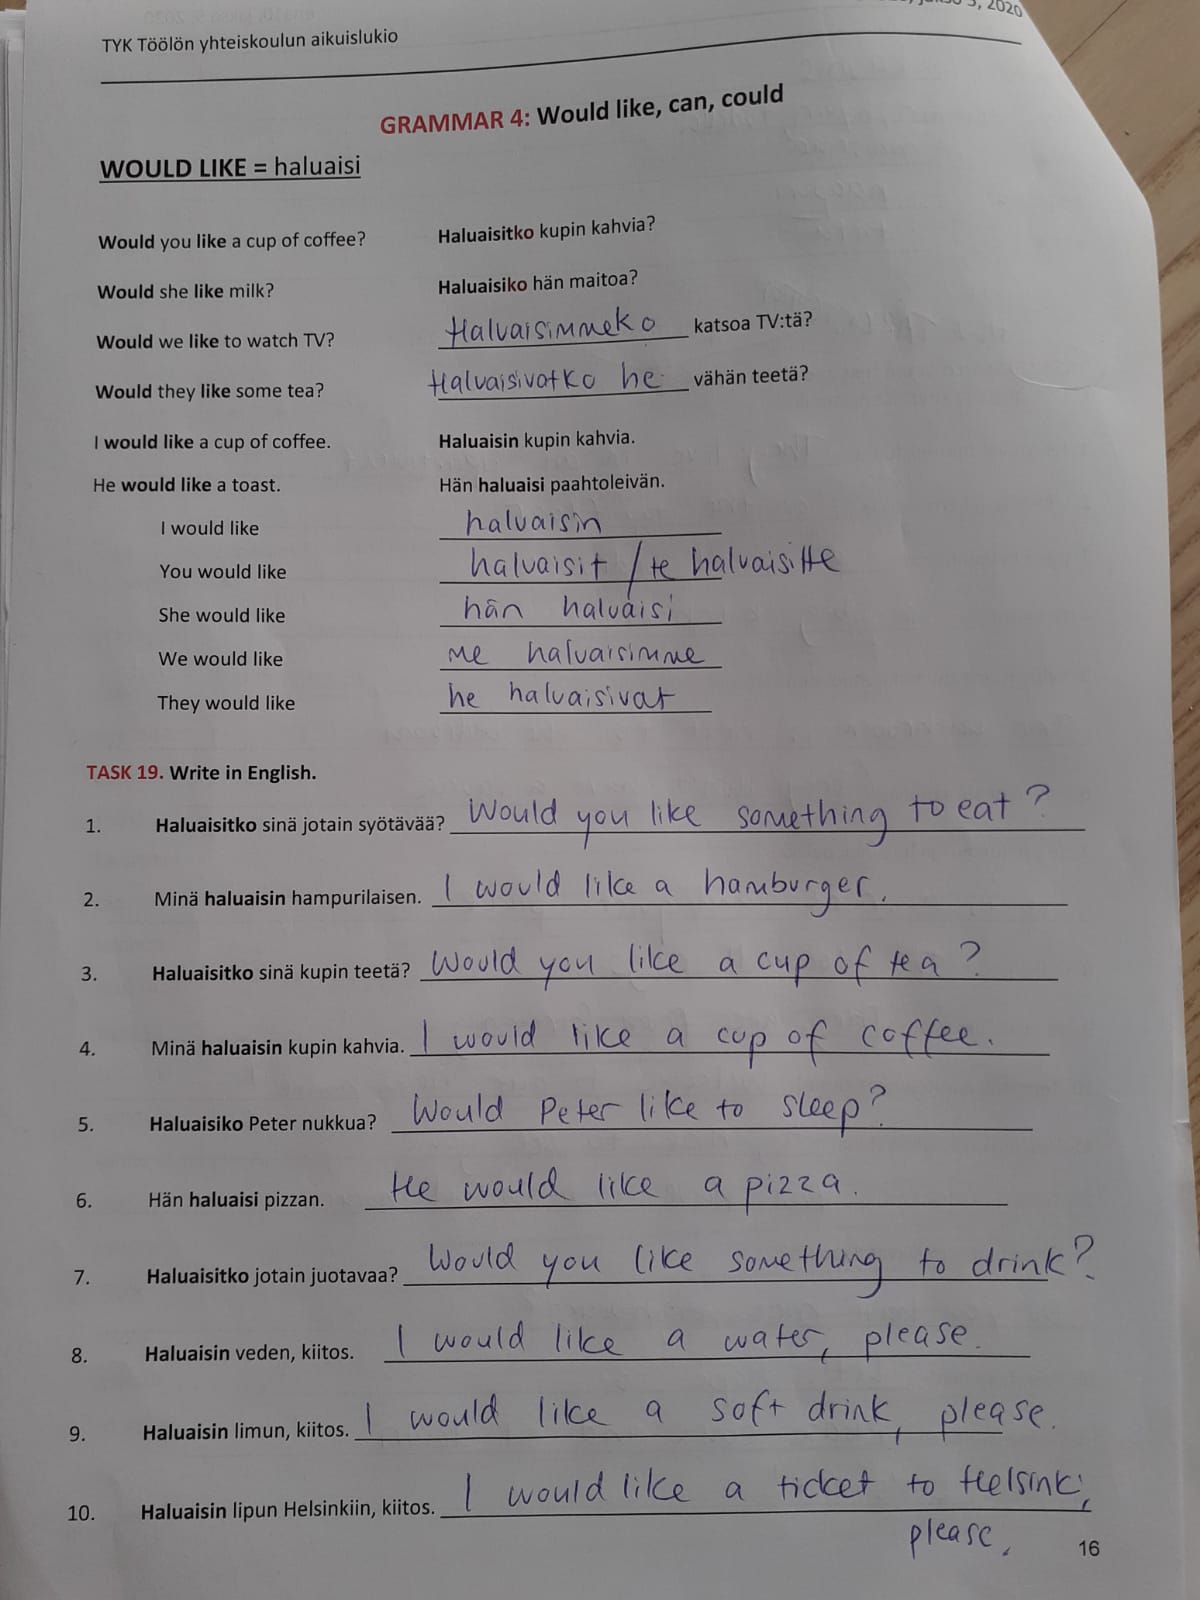 5, 2020
TYK Töölön yhteiskoulun aikuislukio
GRAMMAR 4: Would like, can, could
WOULD LIKE = haluaisi
Would you like a cup of coffee? Haluaisitko kupin kahvia?
Would she like milk? Haluaisiko hän maitoa?
Would we like to watch TV? Haluaisimmeko katsoa TV:tä?
Would they like some tea? Haluaisivatko he vähän teetä?
I would like a cup of coffee. Haluaisin kupin kahvia.
He would like a toast. Hän haluaisi paahtoleivän.
I would like haluaisin
You would like haluaisit / te haluaisitte
She would like hän haluaisi
We would like me haluaisimme
They would like he haluaisivat
TASK 19. Write in English.
1. Haluaisitko sinä jotain syötävää? Would you like something to eat?
2. Minä haluaisin hampurilaisen. I would like a hamburger.
3. Haluaisitko sinä kupin teetä? Would you like a cup of tea?
4. Minä haluaisin kupin kahvia. I would like a cup of coffee.
5. Haluaisiko Peter nukkua? Would Peter like to sleep?
6. Hän haluaisi pizzan. He would like a pizza.
7. Haluaisitko jotain juotavaa? Would you like something to drink?
8. Haluaisin veden, kiitos. I would like a water, please.
9. Haluaisin limun, kiitos. I would like a soft drink, please.
10. Haluaisin lipun Helsinkiin, kiitos. I would like a ticket to Helsinki,
please.
16